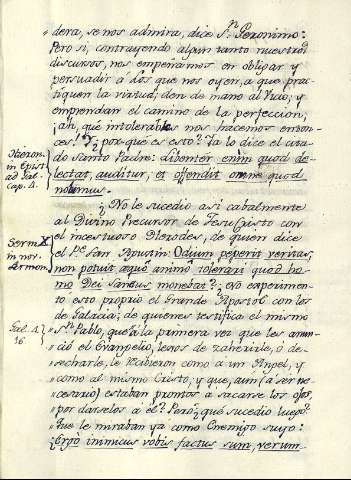 "dera, se nos admira, dice S.n Geronimo:
Pero si, contrayendo algun tanto nuestros
discursos, nos empeñamos en obligar y
persuadir á los que nos oyen, a que prac-
tiquen la virtud; den de mano al Vicio, y
emprendan el camino de la perfeccion,
¡ah, qué intolerables nos hacemos enton-
ces! Y ¿por que es esto? Ya lo dice el cita-
do santo Padre: libenter enim quod de-
lectat, auditur, et offendit omne quod
nolumus.
Hieron.
in Epist.
ad Gal.
cap. 4.
¿No le sucedio asi cabalmente
al Divino Precursor de JesuChristo con
el incestuoso Herodes, de quien dice
el P.e San Agustin: Odium peperit veritas;
non potuit æquo animo tolerari quod ho-
mo Dei Sanctus monebat? ¿No experimen-
to esto proprio el Grande Apostol con los
de Galacia; de quienes testifica el mismo
Serm. X
in nov.
Sermon.
"S.n Pablo, que á la primera vez que les anun-
"ció el Evangelio, lexos de zaherirle, ó de-
"secharle, le recibieron como a un Angel, y
"como al mismo Christo; y que, aun (a ser ne-
"cesario) estaban prontos a sacarse los ojos,
"por darselos a él? Pero ¿qué sucedio luego?
"Que le miraban ya como Enemigo suyo:
"¿Ergo inimicus vobis factus sum, verum-
Gal. 4.
16.